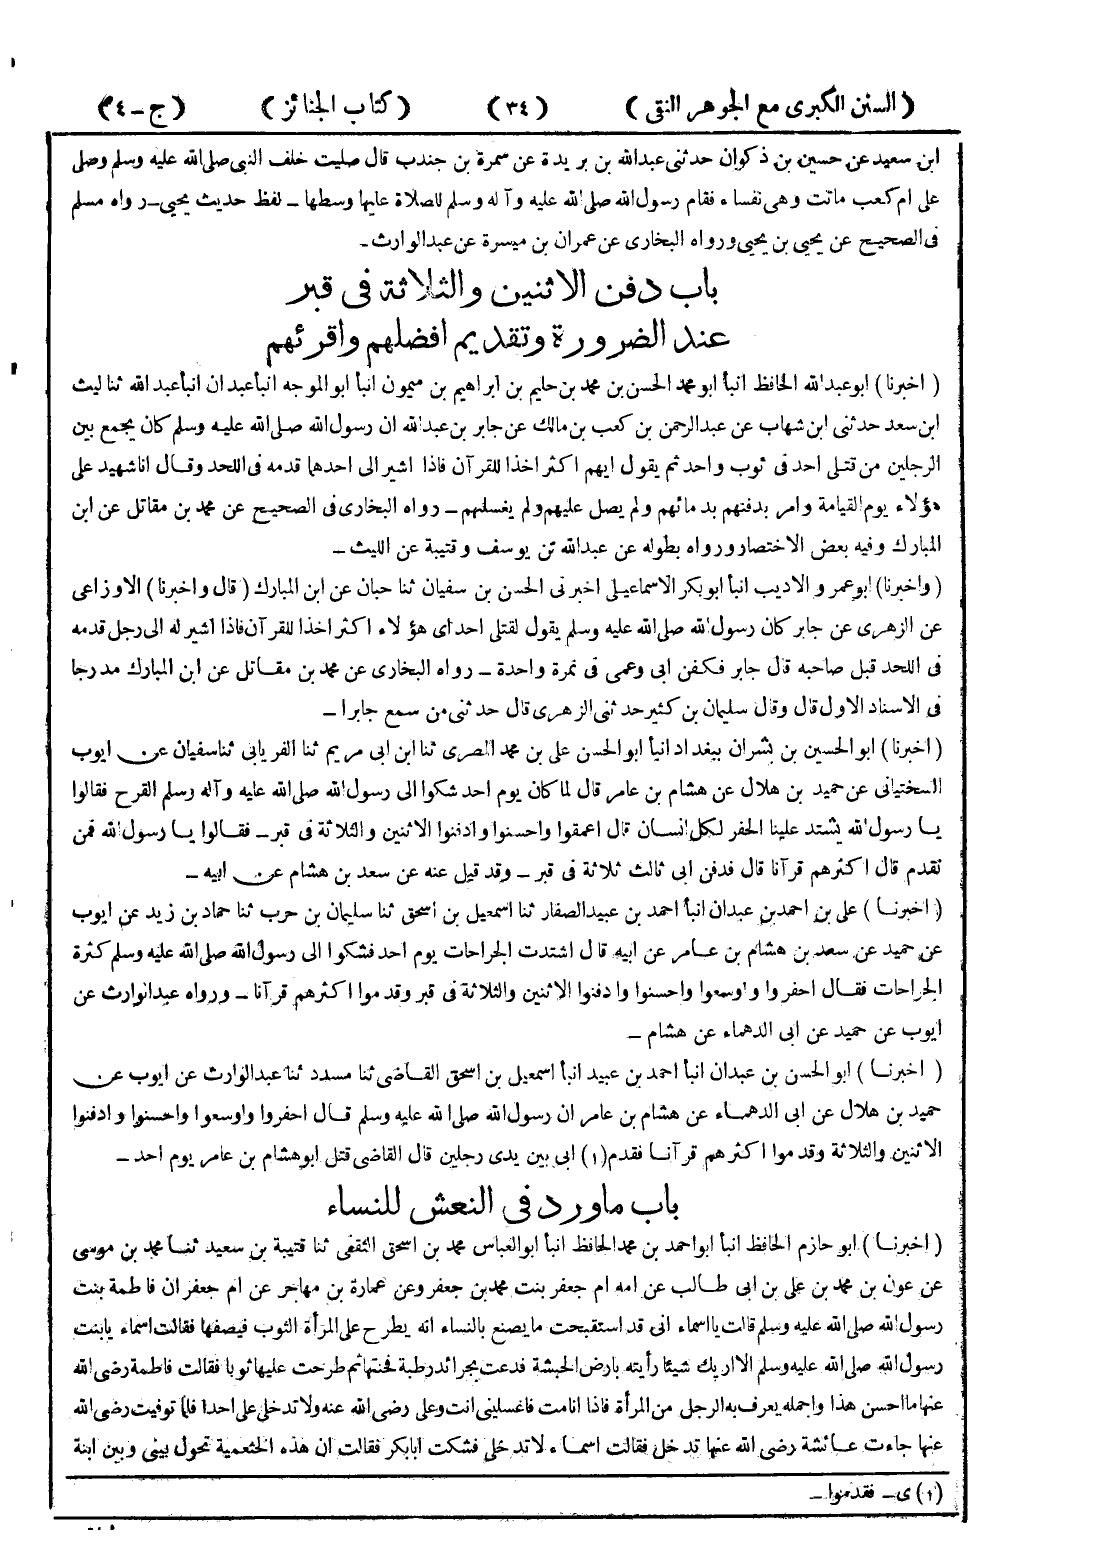 (السنن الكبرى مع الجوهر النقى) (٣٤) (كتاب الجنائز) (ج-٤)
ابن سعيد عن حسين بن ذكوان حدثنى عبدالله بن بريدة عن سمرة بن جندب قال صليت خلف النبى صلى الله عليه وسلم وصلى
على ام كعب ماتت وهى نفساء فقام رسول الله صلى الله عليه وآله وسلم للصلاة عليها وسطها ـ لفظ حديث يحيى ـ رواه مسلم
فى الصحيح عن يحيى بن يحيى ورواه البخارى عن عمران بن ميسرة عن عبدالوارث ـ
باب دفن الاثنين والثلاثة فى قبر
عند الضرورة وتقديم افضلهم واقرئهم
(اخبرنا) ابو عبدالله الحافظ انبأ ابو محمد الحسن بن محمد بن حليم بن ابراهيم بن ميمون انبأ ابو الموجه انبأ عبدان انبأ عبدالله ثنا ليث
ابن سعد حدثنى ابن شهاب عن عبدالرحمن بن كعب بن مالك عن جابر بن عبدالله ان رسول الله صلى الله عليه وسلم كان يجمع بين
الرجلين من قتلى احد فى ثوب واحد ثم يقول ايهم اكثر اخذا للقرآن فاذا اشير الى احدهما قدمه فى اللحد وقال انا شهيد على
هؤلاء يوم القيامة وامر بدفنهم بدمائهم ولم يصل عليهم ولم يغسلهم ـ رواه البخارى فى الصحيح عن محمد بن مقاتل عن ابن
المبارك وفيه بعض الاختصار ورواه بطوله عن عبدالله بن يوسف وقتيبة عن الليث ـ
(واخبرنا) ابو عمرو الاديب انبأ ابو بكر الاسماعيلى اخبرنى الحسن بن سفيان ثنا حبان عن ابن المبارك (قال واخبرنا) الاوزاعى
عن الزهرى عن جابر كان رسول الله صلى الله عليه وسلم يقول لقتلى احد اى هؤلاء اكثر اخذا للقرآن فاذا اشير له الى رجل قدمه
فى اللحد قبل صاحبه قال جابر فكفن ابى وعمى فى نمرة واحدة ـ رواه البخارى عن محمد بن مقاتل عن ابن المبارك مدرجا
فى الاسناد الاول قال وقال سليمان بن كثير حدثنى الزهرى قال حدثنى من سمع جابرا ـ
(اخبرنا) ابو الحسين بن بشران ببغداد انبأ ابو الحسن على بن محمد المصرى ثنا ابن ابى مريم ثنا الفريابى ثنا سفيان عن ايوب
السختيانى عن حميد بن هلال عن هشام بن عامر قال لما كان يوم احد شكوا الى رسول الله صلى الله عليه وآله وسلم القرح فقالوا
يا رسول الله يشتد علينا الحفر لكل انسان قال اعمقوا واحسنوا وادفنوا الاثنين والثلاثة فى قبر ـ فقالوا يا رسول الله فمن
تقدم قال اكثرهم قرآنا قال فدفن ابى ثالث ثلاثة فى قبر ـ وقد قيل عنه عن سعد بن هشام عن ابيه ـ
(اخبرنا) على بن احمد بن عبدان انبأ احمد بن عبيد الصفار ثنا اسمعيل بن اسحق ثنا سليمان بن حرب ثنا حماد بن زيد عن ايوب
عن حميد عن سعد بن هشام بن عامر عن ابيه قال اشتدت الجراحات يوم احد فشكوا الى رسول الله صلى الله عليه وسلم كثرة
الجراحات فقال احفروا واوسعوا واحسنوا وادفنوا الاثنين والثلاثة فى قبر وقدموا اكثرهم قرآنا ـ ورواه عبدالوارث عن
ايوب عن حميد عن ابى الدهماء عن هشام ـ
(اخبرنا) ابو الحسن بن عبدان انبأ احمد بن عبيد انبأ اسمعيل بن اسحق القاضى ثنا مسدد ثنا عبدالوارث عن ايوب عن
حميد بن هلال عن ابى الدهماء عن هشام بن عامر ان رسول الله صلى الله عليه وسلم قال احفروا واوسعوا واحسنوا وادفنوا
الاثنين والثلاثة وقدموا اكثرهم قرآنا فقدم (١) ابى بين يدى رجلين قال القاضى قتل ابو هشام بن عامر يوم احد ـ
باب ماورد فى النعش للنساء
(اخبرنا) ابو حازم الحافظ انبأ ابو احمد بن محمد الحافظ انبأ ابو العباس محمد بن اسحق الثقفى ثنا قتيبة بن سعيد ثنا محمد بن موسى
عن عون بن محمد بن على بن ابى طالب عن امه ام جعفر بنت محمد بن جعفر وعن عمارة بن مهاجر عن ام جعفر ان فاطمة بنت
رسول الله صلى الله عليه وسلم قالت يا اسماء انى قد استقبحت ما يصنع بالنساء انه يطرح على المرأة الثوب فيصفها فقالت اسماء يا بنت
رسول الله صلى الله عليه وسلم الا اريك شيئا رأيته بارض الحبشة فدعت بجرائد رطبة فحنتها ثم طرحت عليها ثوبا فقالت فاطمة رضى الله
عنها ما احسن هذا واجمله يعرف به الرجل من المرأة فاذا انا مت فاغسلينى انت وعلى رضى الله عنه ولا تدخلى على احدا فلما توفيت رضى الله
عنها جاءت عائشة رضى الله عنها تدخل فقالت اسماء لا تدخلى فشكت ابابكر فقالت ان هذه الخثعمية تحول بينى وبين ابنة
(١) ى ـ فقدموا ـ